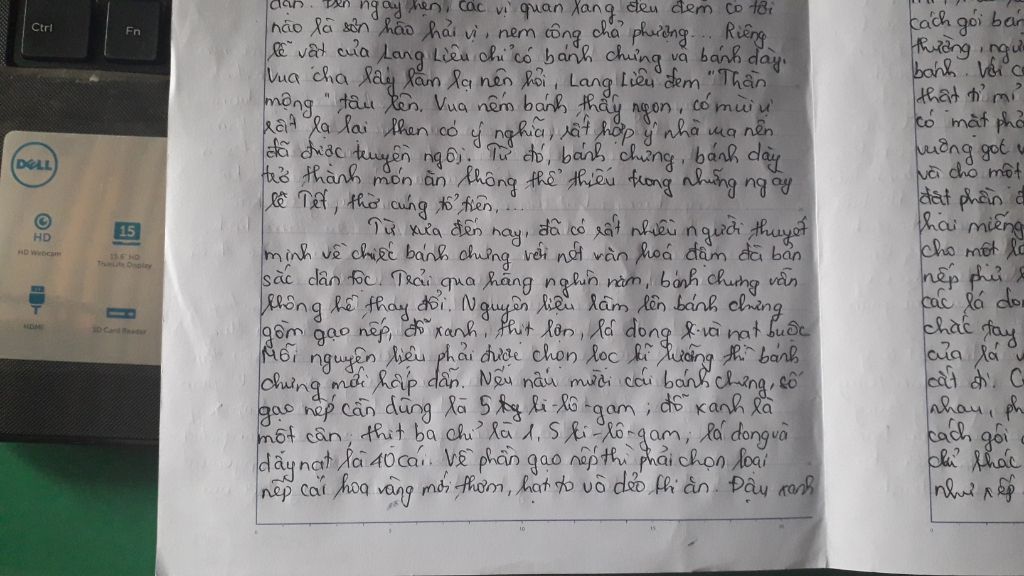 Ctrl
Fn
DELL
HD
HD Webcam
15
15.6" HD
TrueLife Display
HDMI
SD Card Reader
dân. Đến ngày hẹn, các vị quan lang đều đem cỗ tới
nào là sơn hào hải vị, nem công chả phượng... Riêng
lễ vật của Lang Liêu chỉ có bánh chưng và bánh dày.
Vua cha lấy làm lạ nên hỏi, Lang Liêu đem "Thần
mộng" tâu lên. Vua nếm bánh thấy ngon, có mùi vị
rất lạ lại thêm có ý nghĩa, rất hợp ý nhà vua nên
đã được truyền ngôi. Từ đó, bánh chưng, bánh dày
trở thành món ăn không thể thiếu trong những ngày
lễ Tết, thờ cúng tổ tiên,...
Từ xưa đến nay, đã có rất nhiều người thuyết
minh về chiếc bánh chưng với nét văn hoá đậm đà bản
sắc dân tộc. Trải qua hàng nghìn năm, bánh chưng vẫn
không hề thay đổi. Nguyên liệu làm lên bánh chưng
gồm gạo nếp, đỗ xanh, thịt lợn, lá dong và nạt buộc
Mỗi nguyên liệu phải được chọn lọc kĩ lưỡng thì bánh
chưng mới hấp dẫn. Nếu nấu mười cái bánh chưng, số
gạo nếp cần dùng là 5 ki-lô-gam; đỗ xanh là
một cân; thịt ba chỉ là 1,5 ki-lô-gam, lá dong và
dây nạt là 40 cái. Về phần gạo nếp thì phải chọn loại
nếp cái hoa vàng mới thơm, hạt to và dẻo thì ăn. Đậu xanh
cách gói bán
thường, ngườ
bánh. Với c
thật tỉ mỉ
có mặt phả
vuông góc v
và cho một
đặt phần đ
hai miếng
cho một lớ
nếp phủ l
các lá don
chắc tay
của lá v
cắt đi. C
nhau, ph
cách gói
chỉ khác
như xếp